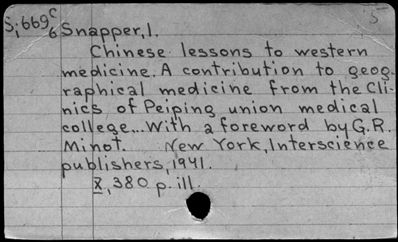 S,669c
6 Snapper, I.
Chinese lessons to western
medicine. A contribution to geog-
raphical medicine from the Cli-
nics of Peiping union medical
college... With a foreword by G.R.
Minot. New York, Interscience
publishers, 1941.
x, 380 p. ill.